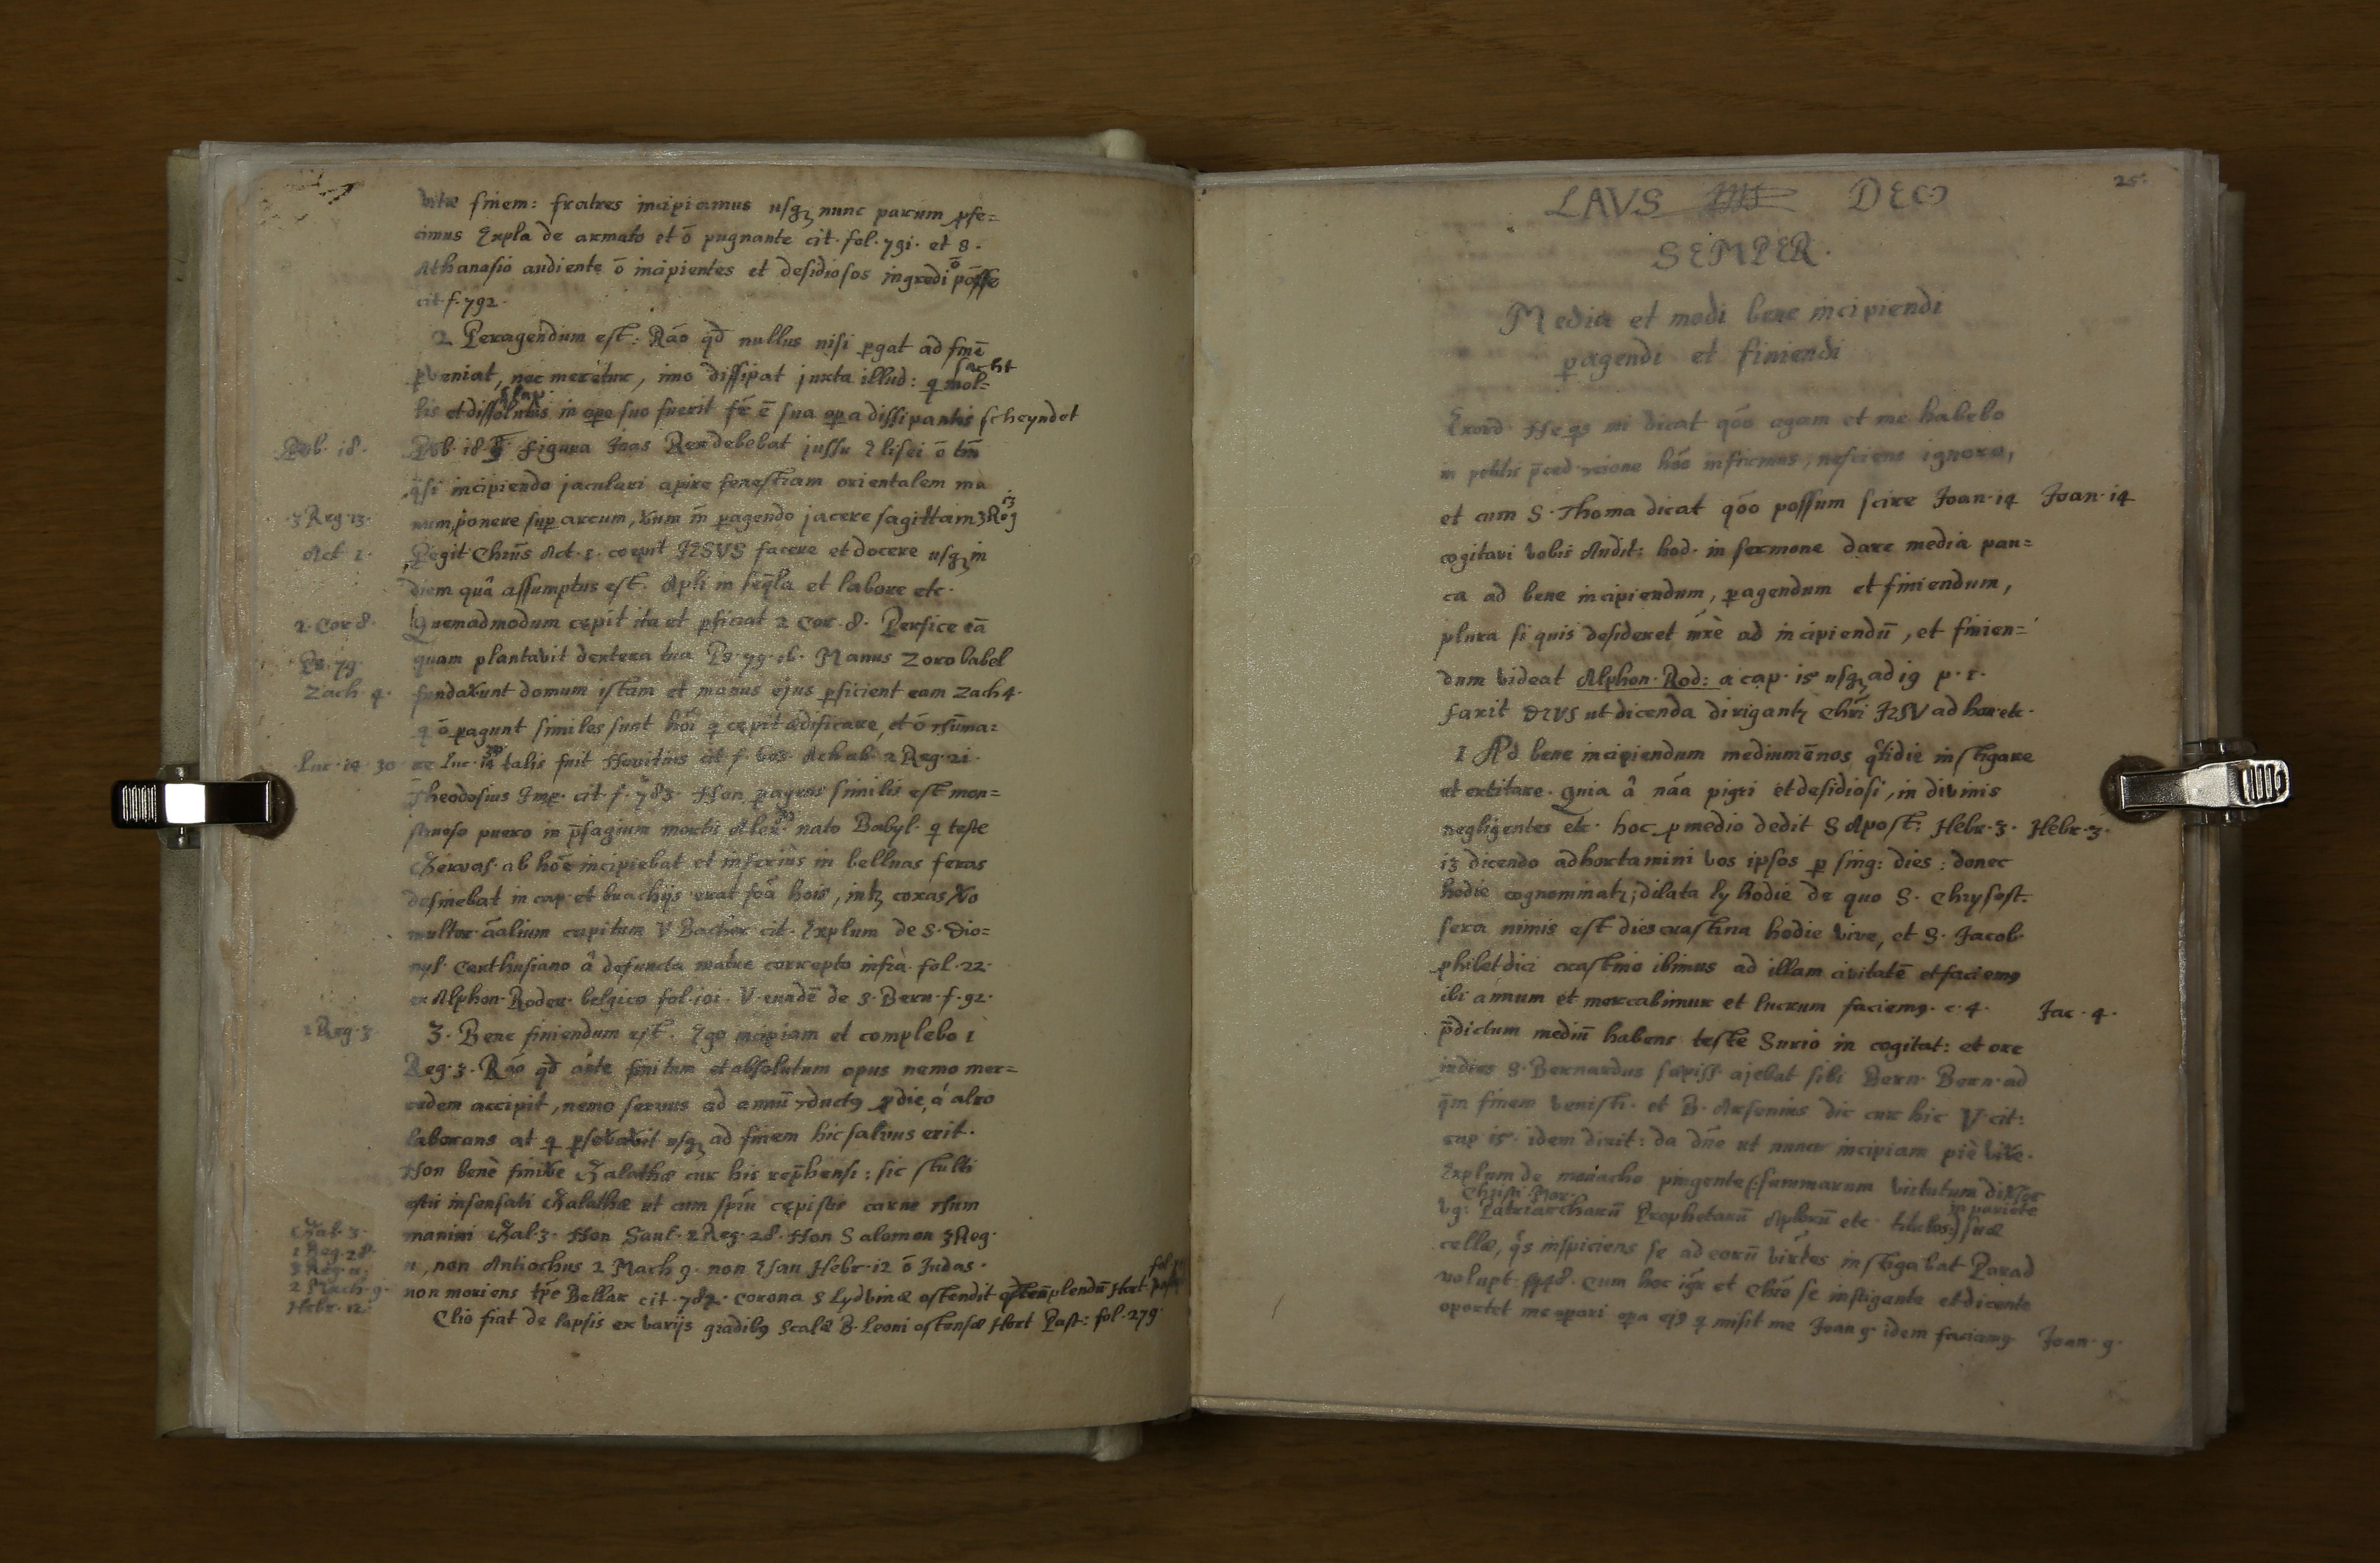 vitæ finem: fratres incipiamus usqꝫ nunc parum pfe=
cimus Expla de armato et õ pugnante cit. fol. 791. et S.
Athanasio audiente õ incipientes et desidiosos ingredi õ põsse
cit. f. 792.
2 Peragendum est: Rão qd nullus nisi pgat ad finē
pveniat, nec meretur, imo dissipat juxta illud: q mol=
sacht
lis et dissolutus in ope suo fuerit fr ē sua opa dissipantis scheyndet
slap
Pvb. 18.
Pvb. 18. Figura Joas Rex debebat jussu Elisei õ tm̃
qsi incipiendo jaculari apire fenestram orientalem ma
3 Reg. 13.
num ponere sup arcum, vum m̃ pagendo jacere sagittam 3 Reg 13
Act 1.
Pegit Chrũs Act. 1. coepit JESVS facere et docere usqꝫ in
diem quâ assumptus est. Apli in seqla et labore etc.
2. Cor 8.
Quemadmodum cepit ita et pficiat 2 Cor. 8. Perfice eã
Ps. 79.
quam plantavit dextera tua Ps. 79. 16. Manus Zorobabel
Zach. 4.
fundaverunt domum istam et manus ejus pficient eam Zach 4.
q õ pagunt similes sunt hõi q cepit ædificare, et õ ɔsũma=
Luc. 14 30
re Luc. 14 30 talis fuit Novitius cit f. 605. Achab. 2 Reg. 21.
Theodosius Imp. cit. f. 783. Non pagens similis est mon=
struoso puero in p̃sagium mortis Alex. nato Babyl. q teste
Gervas. ab hõe incipiebat et inferiùs in belluas feras
desinebat in cap. et brachijs erat fõa hois, intꝫ coxas vo
multor. ãalium capitum V Bachor cit. Explum de S. Dio=
nys. Carthusiano â defuncta matre correpto infrà fol. 22.
ex Alphon. Roder. belgico fol. 101. V. eundē de S. Bern. f. 92.
1 Reg. 3
3. Bene finiendum est. Ego incipiam et complebo 1
Reg. 3. Rão qd ante finitum et absolutum opus nemo mer=
cedem accipit, nemo servus ad annũ ɔductꝰ p die, á alro
laborans at q pseveravit usqꝫ ad finem hic salvus erit.
Non benè finivere Galathæ cur his rep̃hensi: sic stulti
estis insensati Galathæ ut cum spũ cepistis carne ɔsum
Gal. 3.
manini Gal. 3. Non Saul. 1 Reg. 28. Non Salomon 3 Reg.
1 Reg. 28.
3 Reg. 11.
11, non Antiochus 2 Mach 9. non Esau Hebr. 12 õ Judas.
2 Mach. 9.
non moriens tpē Bellar cit. 782. corona S Lydvinæ ostendit plendũ Hort. past.
Hebr. 12.
Clio fiat de lapsis ex varijs gradibꝰ Scalæ B. Leoni ostensæ Hort Past: fol. 279
25.
LAVS DEO
SEMPER.
Media et modi bene incipiendi
pagendi et finiendi
Exord. Ne qs mi dicat qõo agam et me habebo
in p̃ced. ɔcione hõo infirmus, nesciens ignoro,
et cum S. Thoma dicat qõo possum scire Joan. 14 Joan. 14
cogitavi vobis Audit: hod. in sermone dare media pau=
ca ad bene incipiendum, pagendum et finiendum,
plura si quis desideret m̃rè ad incipiendũ, et finien=
dum videat Alphon. Rod: a cap. 15 usqꝫ ad 19 p. 1.
Faxit DEVS ut dicenda dirigantꝫ Chrĩ JESV ad hon. etc.
1 Ad bene incipiendum medium ē nos qtidie instigare
et excitare. quia â nãa pigri et desidiosi, in divinis
negligentes etc. hoc p medio dedit S Apost: Hebr. 3. Hebr. 3.
13 dicendo adhortamini vos ipsos p sing: dies: donec
hodie cognominatꝫ; dilata ly hodie de quo S. Chrysost.
sera nimis est dies crastina hodie vive, et S. Jacob.
phibet dici crastino ibimus ad illam civitatē et faciemꝰ
ibi annum et mercabimur et lucrum faciemꝰ. c. 4. Jac. 4.
p̃dictum mediũ habens teste Surio in cogitat: et ore
indies S. Bernardus sæpiss. ajebat sibi Bern. Bern. ad
q̃m finem venisti. et B. Arsenius dic cur hic V. cit:
cap 15. idem dixit: da dñe ut nunc incipiam piè vivere.
Explum de monacho pingente (: summarum virtutum
Christi Mor.
vg: Patriarcharũ Prophetarũ Aplorũ etc. titulos :) suæ
in pariete
cellæ, qs inspiciens se ad eorũ virtes instigabat Parad
volupt. cum hoc igr et Chro se instigante et dicente
oportet me opari opa ejꝰ q misit me Joan 9. idem faciamꝰ Joan. 9.